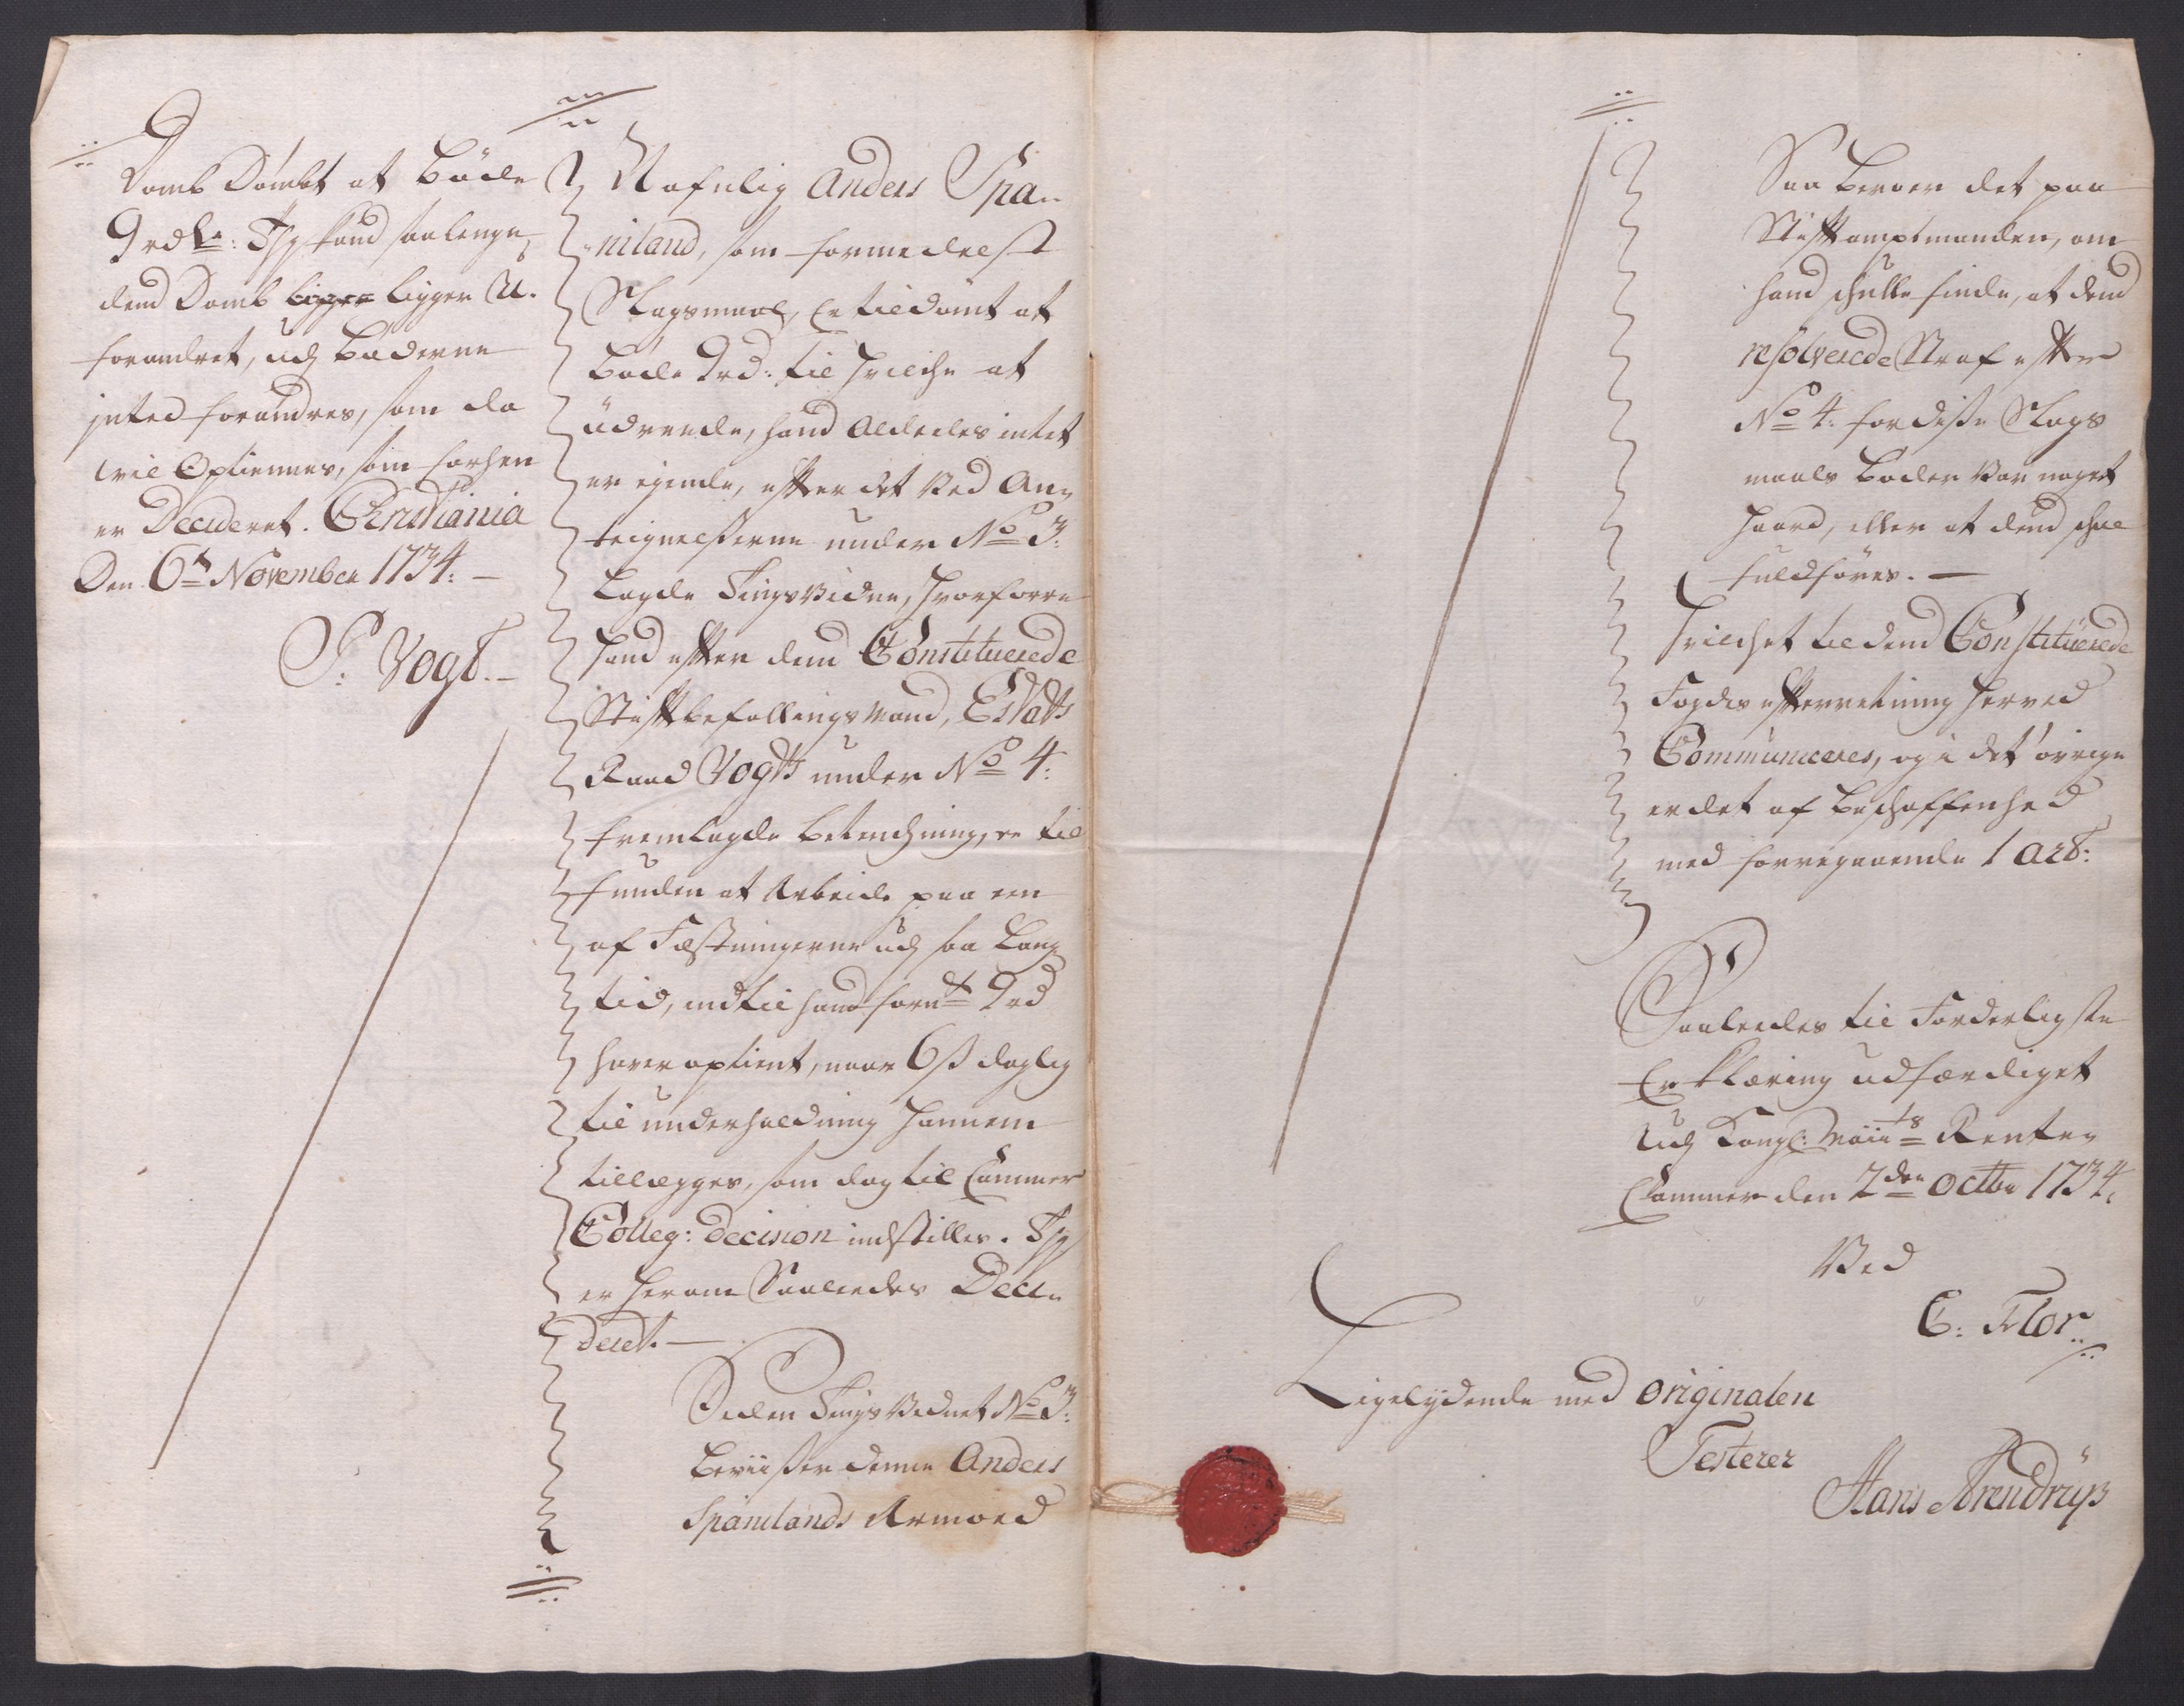 Domb Dømbt at bøde
9 rdl: Jeg kand saalenge
dend Domb ligger ligger U-
forandret, udj bøderne
inted forandres, som da
vil Optiennes, som forhen
er Decideret. Christiania
Den 6t November 1734. —
P: Vogt. —
Nafnlig Anders Spa-
niland, som formedelst
Slagsmaal, er tildømt at
bøde 9 rd: til hvilche at
udreede, hand aldeeles intet
er ejende, efter det Ved An-
teignelserne under No 3:
lagde Tingsvidne, hvorforre
hand efter dend Constituerede
Stiftbefallingsmand, Estatz
Raad Vogts under No 4:
fremlagde betenchning, er til
funden at Arbeide paa een
af Fæstningerne udj saa lang
tid, indtil hand fornt 9 rd
haver optient, naar 6 s daglig
til underholdning hannem
tillegges, som dog til Cammer
Colleg: decision indstilles. Jeg
er herom Saaledes Deci-
deret. —
Siden Tingsvidnet No 3:
beviiser denne Anders
Spanilands Armoed
Saa beroer det paa
Stiftamptmanden, om
hand schulle finde, at dend
resolverede Straf efter
No 4: for disse Slags
maals bøder var noget
haard, eller at dend schal
fuldføres. —
hvilchet til dend Constituerede
Fogdes efterretning herved
Communiceres, og i det øvrige
er det af beschaffenhed
med forregaaende 1 Art:
Saaledes til Forderligste
Erklæring udferdiget
udj Kongl: May:ts Rente-
Cammer den 2den Octbr 1734.
Ved
C: Flor
Ligelydende med originalen
Testerer
Hans Arendrup